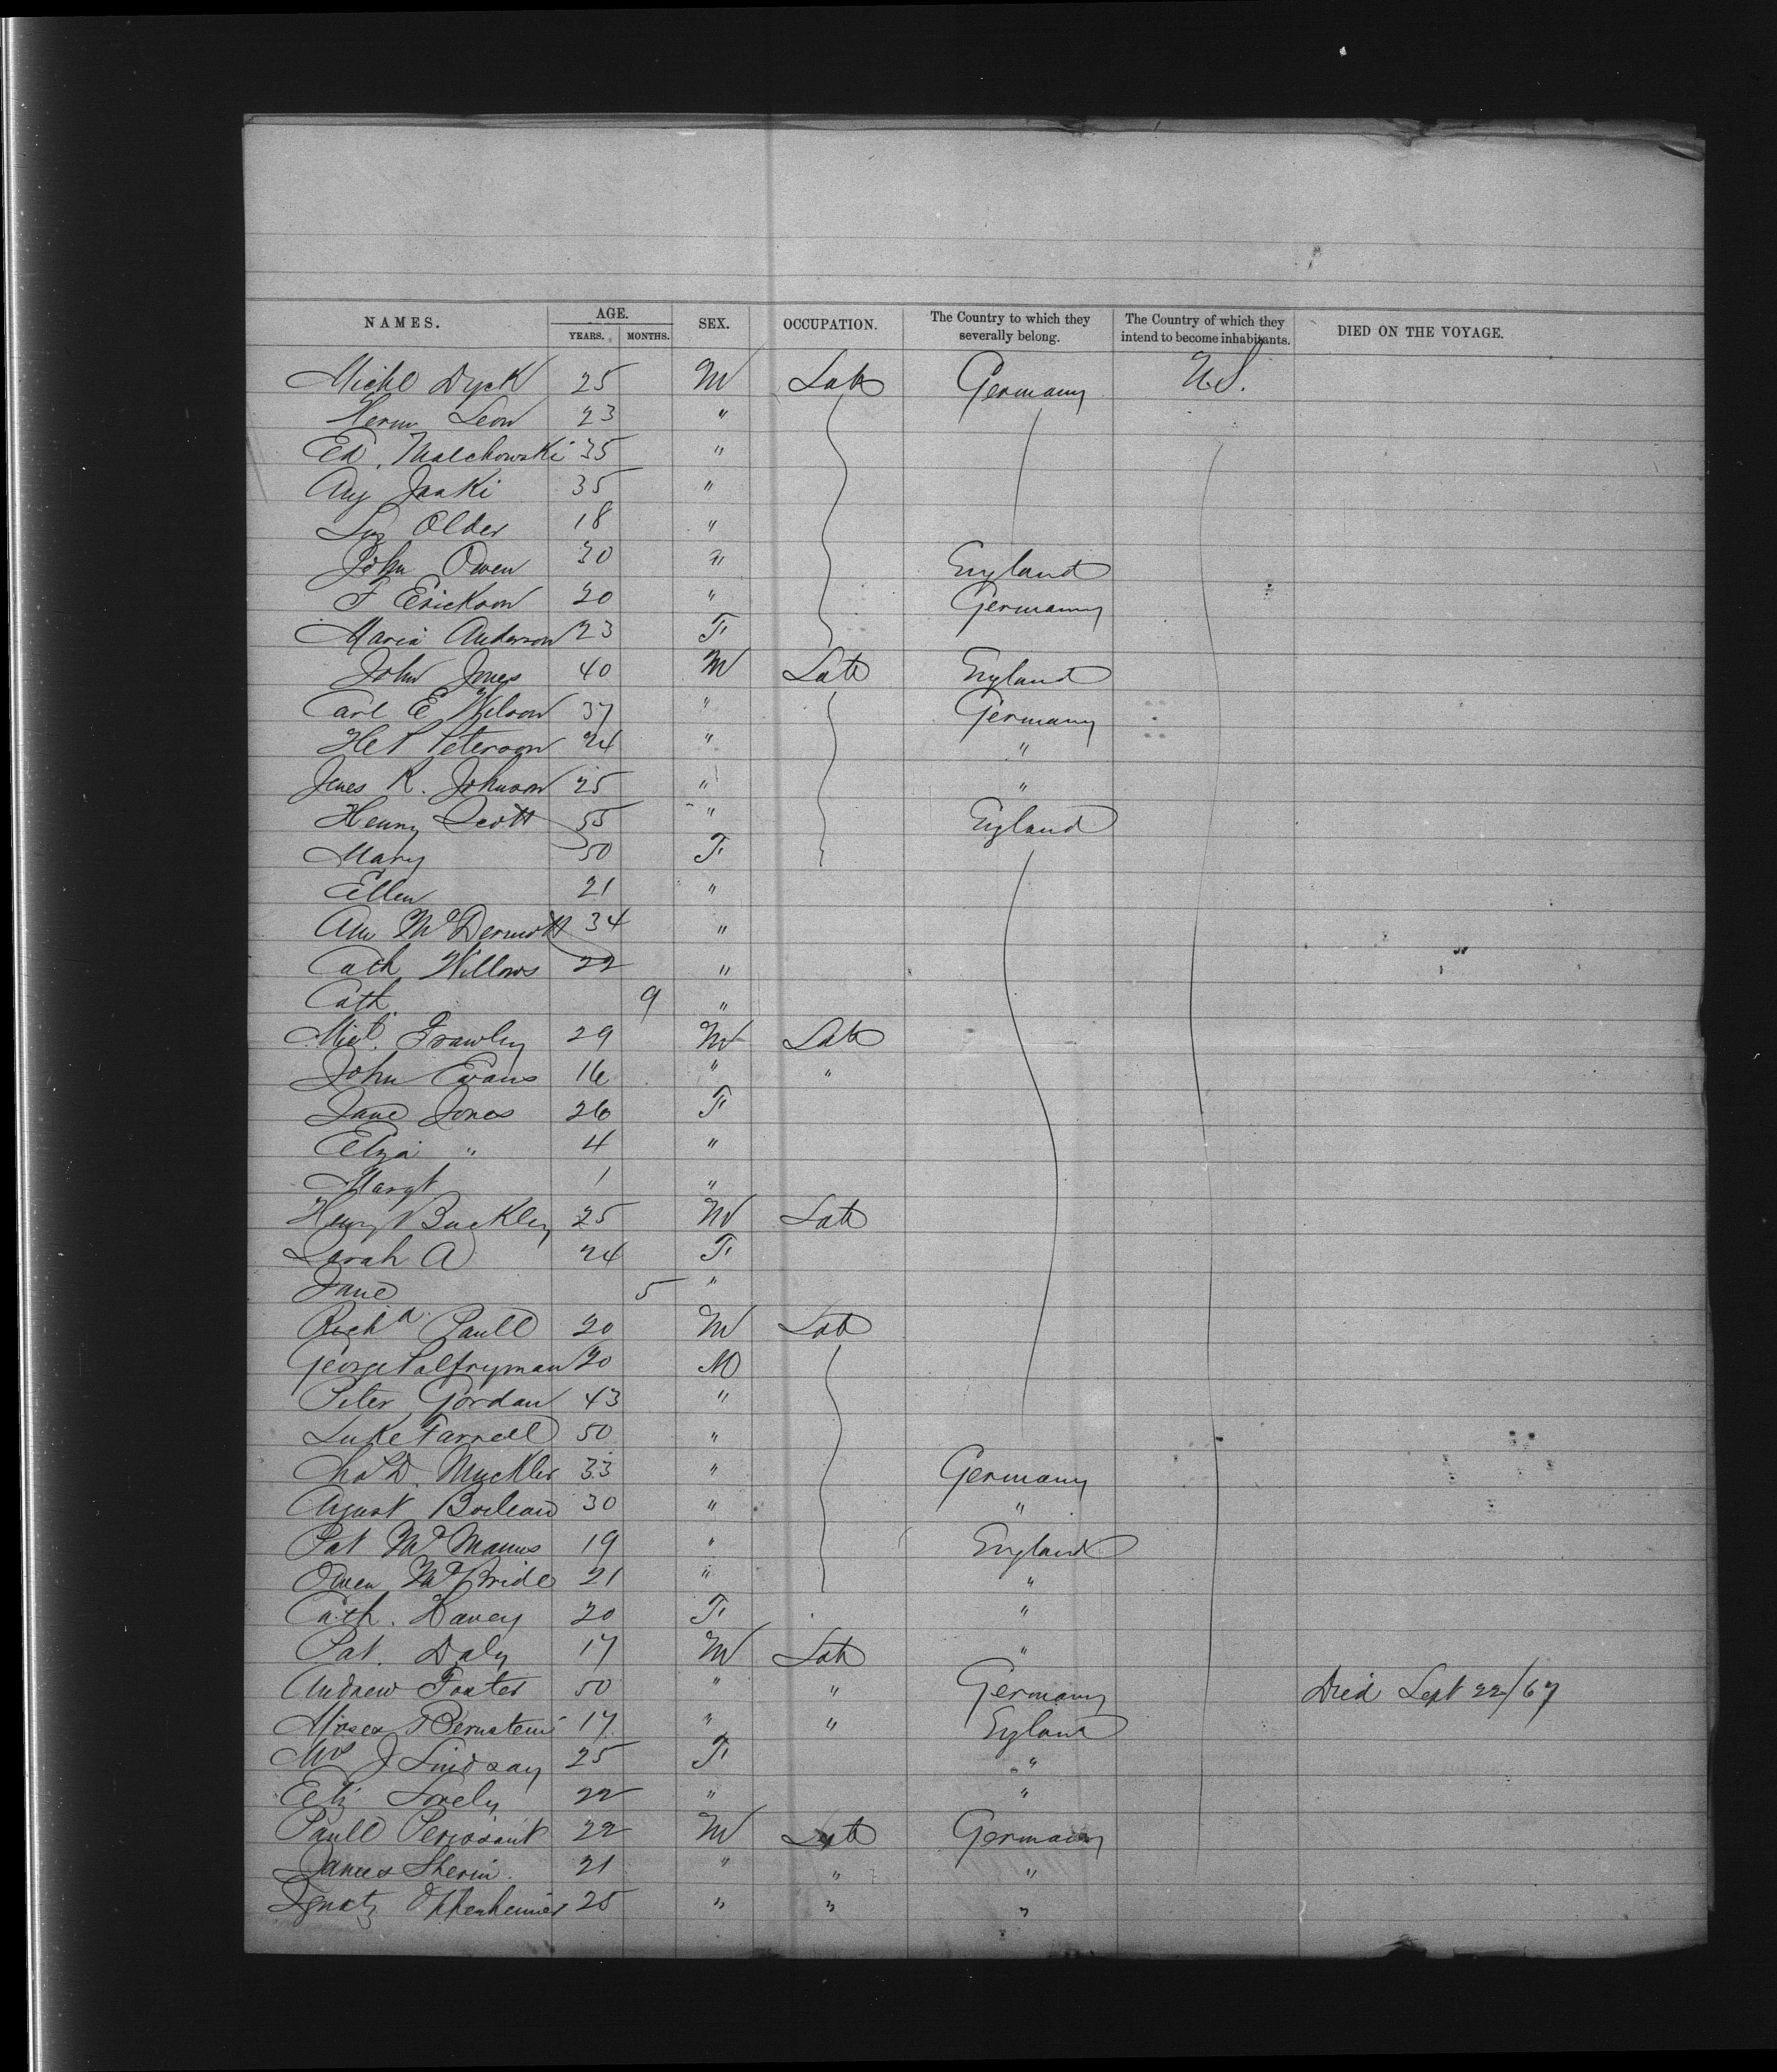 NAMES. AGE. YEARS. MONTHS. SEX. OCCUPATION. The Country to which they severally belong. The Country of which they intend to become inhabitants. DIED ON THE VOYAGE.
Michl Dyck 25 M Lab Germany U.S.
Herm Leon 23 "
Ed. Malchowski 35 "
Aug Janki 35 "
Older 18 "
John Owen 30 " England
F Erickson 20 " Germany
Maria Anderson 23 F
John Jones 40 M Lab England
Carl E Nelson 37 " Germany
Peterson 24 " "
Jens R. Johnson 25 " "
Henry Scott 55 " England
Mary 50 F
Ellen 21 "
Ann McDermott 34 "
Cath Willows 22 "
Cath 9 "
Micl. Frawley 29 M Lab
John Evans 16 " "
Jane Jones 26 F
Eliza " 4 "
Margt 1 "
Henry Buckley 25 M Lab
Sarah A 24 F
Jane 5 "
Richd Paull 20 M Lab
George Palfryman 20 M
Peter Gordan 43 "
Luke Farrell 50 "
Muckler 33 " Germany
August Boileau 30 " "
Pat McManus 19 " England
Owen McBride 21 " "
Cath. Havey 20 F "
Pat. Daly 17 M Lab "
Andrew Foster 50 " " Germany Died Sept 22/67
Moses Bernstein 17 " " England
Mrs J Lindsay 25 F "
Eliz Lovely 22 " "
Paull 22 M Lab Germany
James Sherin. 21 " " "
Ignatz Oppenheimer 25 " " "